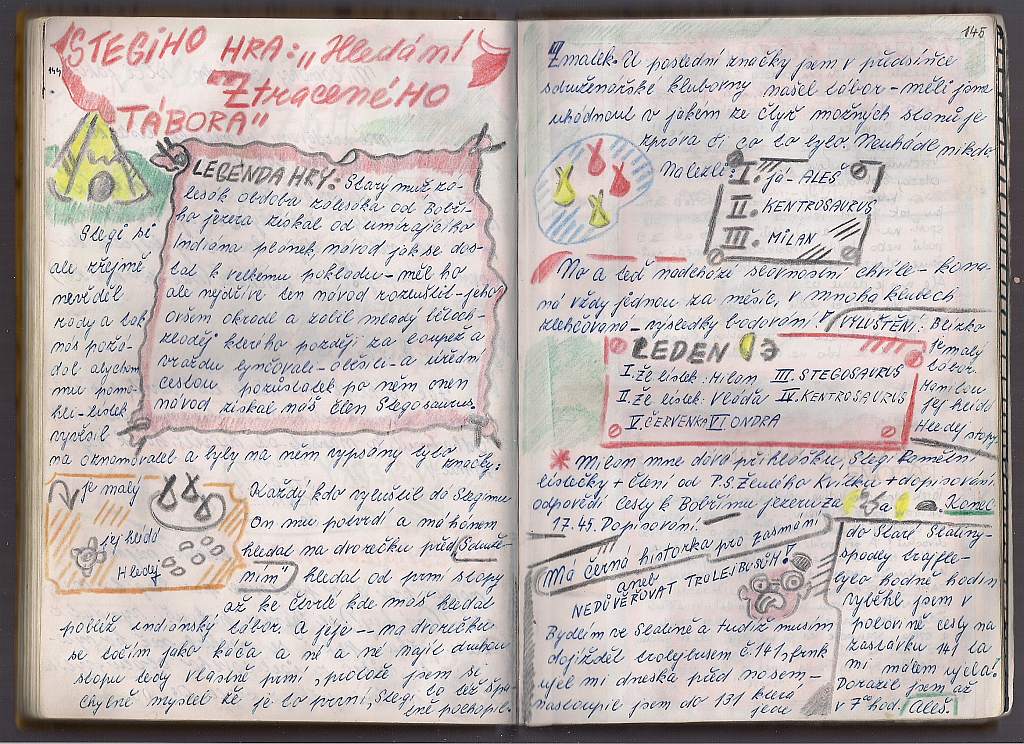 144
STEGiHO HRA: „Hledání
Ztraceného
TÁBORA"
LEGENDA HRY: Starý muž zá-
lesák obdoba zálesáka od Bobří-
ho jezera získal od umírajícího
Indiána plánek, návod jak se dos-
tat k velkému pokladu - měl ho
ale nejdříve ten návod rozluštit - jeho
ovšem okradl a zabil mladý
zloděj kterého později za loupež a
vraždu lynčovali - oběsili - a úřední
cestou pozůstalek po něm onen
návod získal náš člen Stegosaurus.
Stegi si
ale zřejmě
nevěděl
rady a tak
nás požá-
dal abychom
mu pomo-
hli - lístek
vyvěsil
na oznamovatel a byly na něm vypsány tyto
značky:
je malý
jej heidd
Hledej
Každý kdo vyluštil dá Stegimu
On mu potvrdí a má honem
hledat na dvorečku před „Sdruže-
ním" hledat od první stopy
až ke čtvrté kde máš hledat
poblíž indiánský tábor. A jéje -- na dvorečku
se točím jako káča a ne a ne najít druhou
stopu tedy vlastně první, protože jsem si
chybně myslel že je to první, Stegi to též špa-
tně pochopil.
145
Zmatek. U poslední značky jsem v předsíňce
sdruženářské klubovny našel tábor - měli jsme
uhádnout v jakém ze čtyř možných stanů je
zpráva či co to bylo. Neuhádl nikdo.
Nalezli: I. já - ALEŠ
II. KENTROSAURUS
III. MILAN
No a teď nadchází slavnostní chvíle - kona-
ná vždy jednou za měsíc, v mnoha klubech
zlehčovaná - výsledky bodování!
VYLUŠTĚNÍ: Blízko
je malý
tábor.
Jej
Hledej stopy.
LEDEN
I. Že lístek: Milan III. STEGOSAURUS
II. že lístek: Vláďa IV. KENTROSAURUS
V. ČERVENKA VI ONDRA
* Milan mne dává přihlášku, Stegi Pamětní
lístečky + čtení od P.S. Ženatého Kvítku + dopisování
odpovědí Cesty k Bobřímu jezeru za a Konec
17.45. Dopisování.
Má černá historka pro zasmání
aneb
NEDŮVĚŘOVAT TROLEJBUSŮM!
Bydlím ve Slatině a tudíž musím
dojíždět trolejbusem č. 141, frnk
ujel mi dneska před nosem -
nastoupil jsem do 131 která
jede
do Staré Slatiny -
spodky trajfle -
bylo hodně hodin
vyběhl jsem v
polovině cesty na
zastávku 141 ta
mi málem ujela!
Dorazil jsem až
v 7 hod. Aleš.